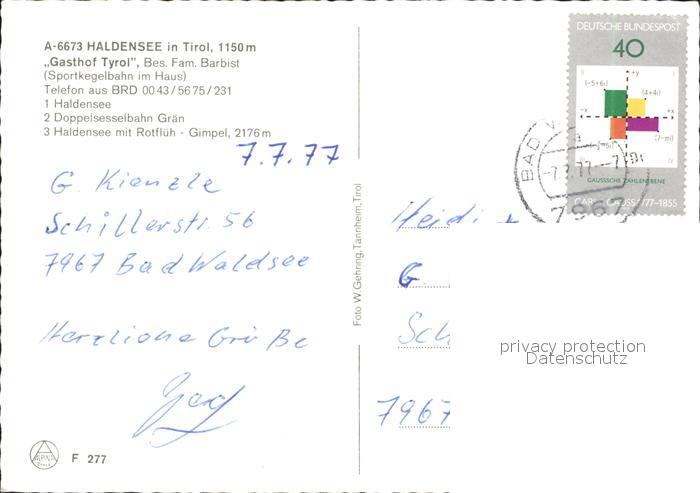 A-6673 HALDENSEE in Tirol, 1150 m
„Gasthof Tyrol", Bes. Fam. Barbist
(Sportkegelbahn im Haus)
Telefon aus BRD 00 43 / 56 75 / 231
1 Haldensee
2 Doppelsesselbahn Grän
3 Haldensee mit Rotflüh - Gimpel, 2176 m
7.7.77
G. Kienzle
Schillerstr. 56
7967 Bad Waldsee
Herzliche Grüße
ALPINA
F 277
Foto W. Gehring, Tannheim, Tirol
DEUTSCHE BUNDESPOST
40
+y
(-5+6i)
(4+4i)
-x
+x
(7-mi)
GAUSSSCHE ZAHLENEBENE
CARL F. GAUSS 1777-1855
BAD W
-7.7.77-
7967
Heidi
G.
Sch
7967
privacy protection
Datenschutz